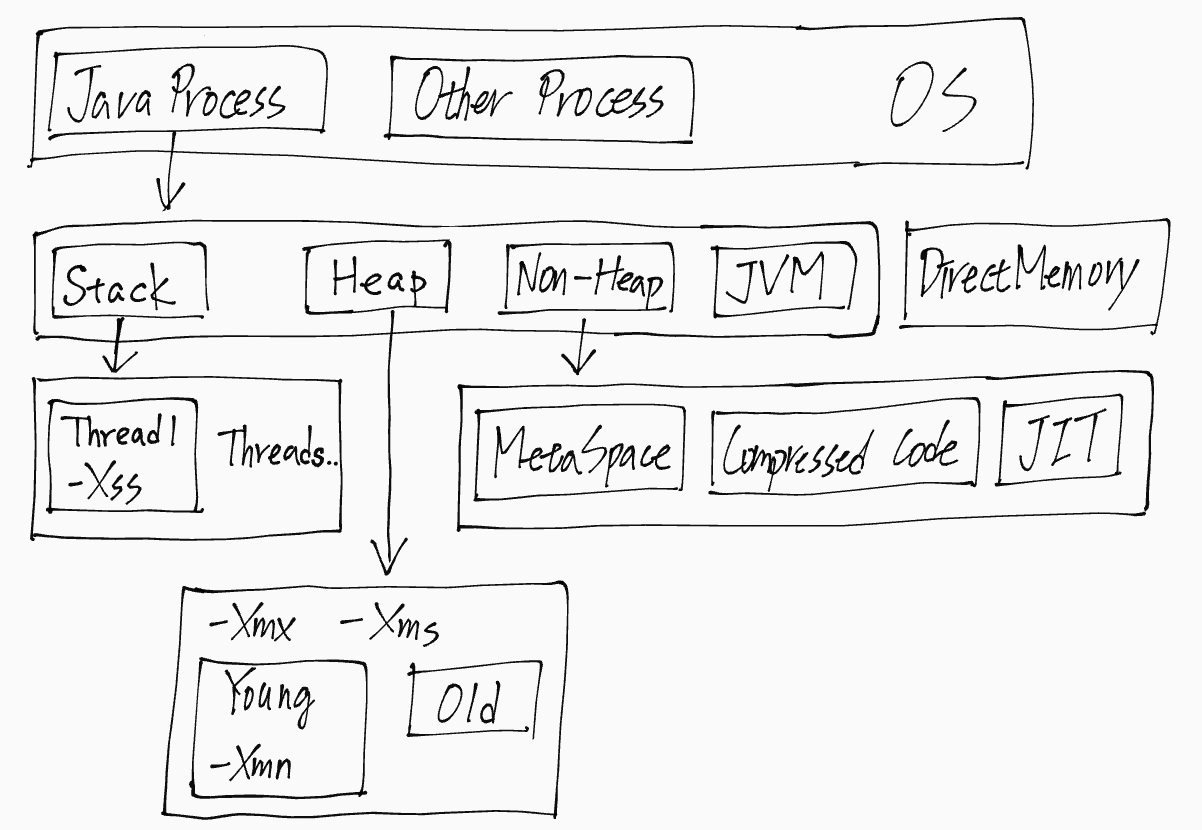 Java Process
Other Process
OS
Stack
Heap
Non-Heap
JVM
DirectMemory
Thread1
-Xss
Threads..
MetaSpace
Compressed Code
JIT
-Xmx -Xms
Young
-Xmn
Old